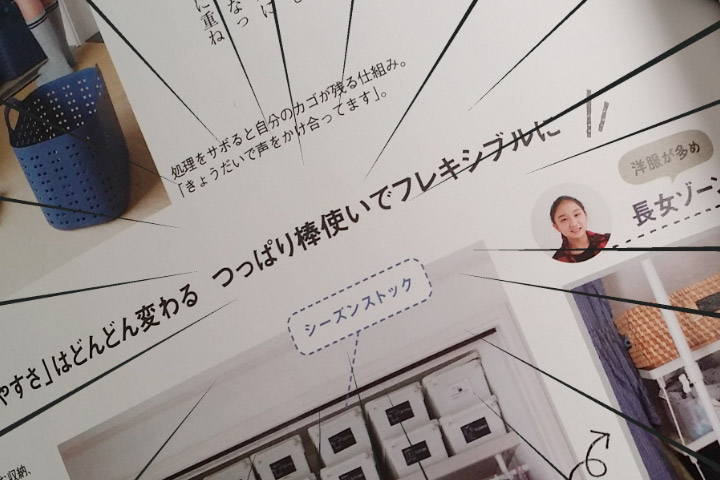 なっ
に
に重ね
処理をサボると自分のカゴが残る仕組み。
「きょうだいで声をかけ合ってます」。
やすさ」はどんどん変わる つっぱり棒使いでフレキシブルに
洋服が多め
長女ゾーン
シーズンストック
収納、